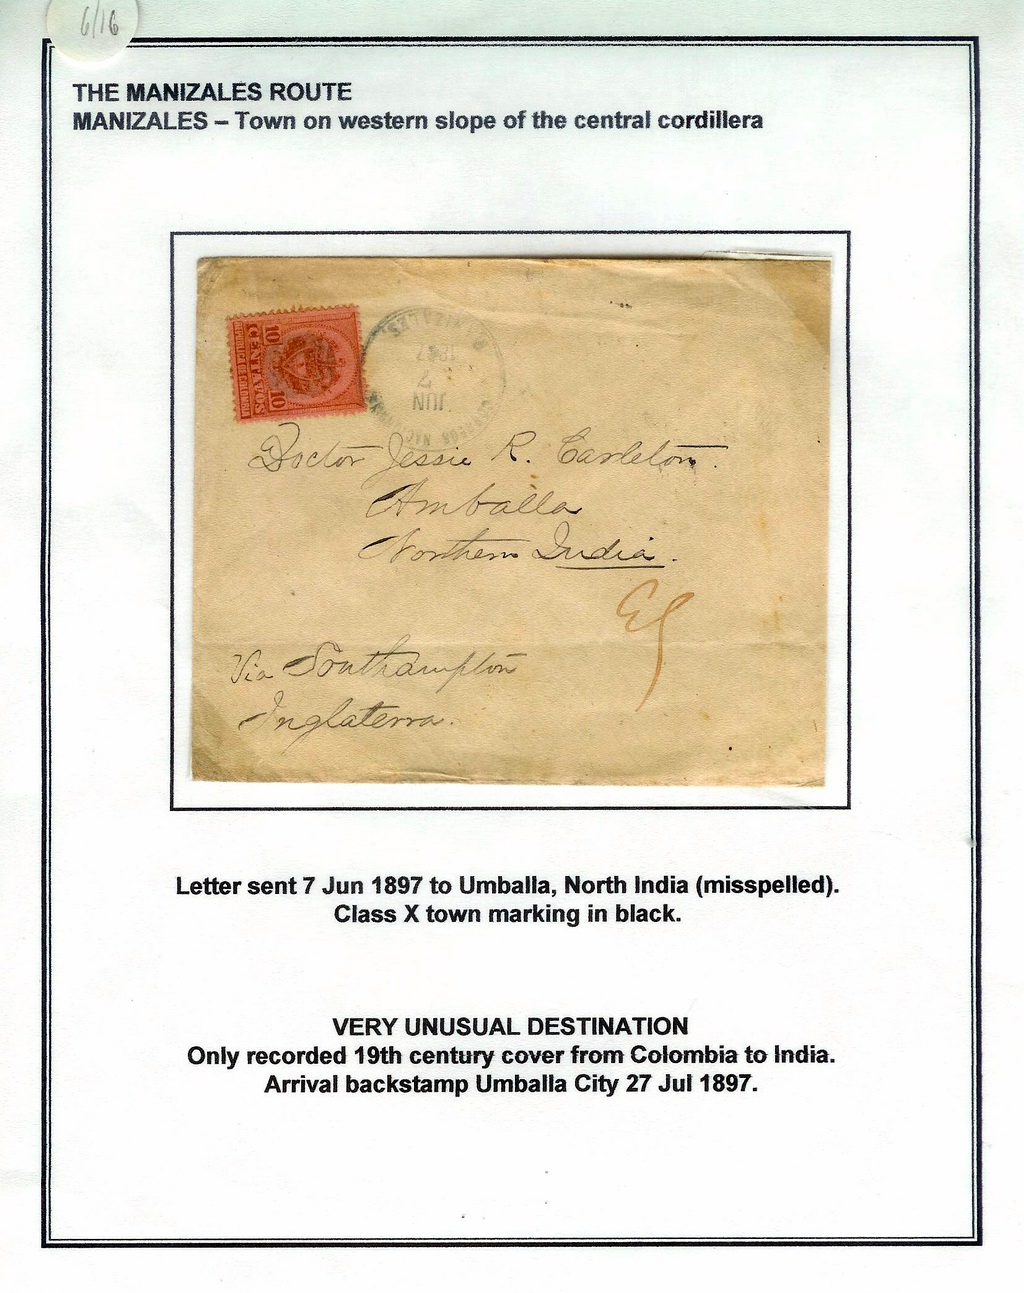 6/16
THE MANIZALES ROUTE
MANIZALES – Town on western slope of the central cordillera
10 10
CENTAVOS
REPUBLICA DE COLOMBIA
MANIZALES
1897
7
JUN
CORREOS NACIONALES
Doctor Jessie R. Carleton.
Amballa
Northern India.
Via Southampton
Inglaterra.
Letter sent 7 Jun 1897 to Umballa, North India (misspelled).
Class X town marking in black.
VERY UNUSUAL DESTINATION
Only recorded 19th century cover from Colombia to India.
Arrival backstamp Umballa City 27 Jul 1897.